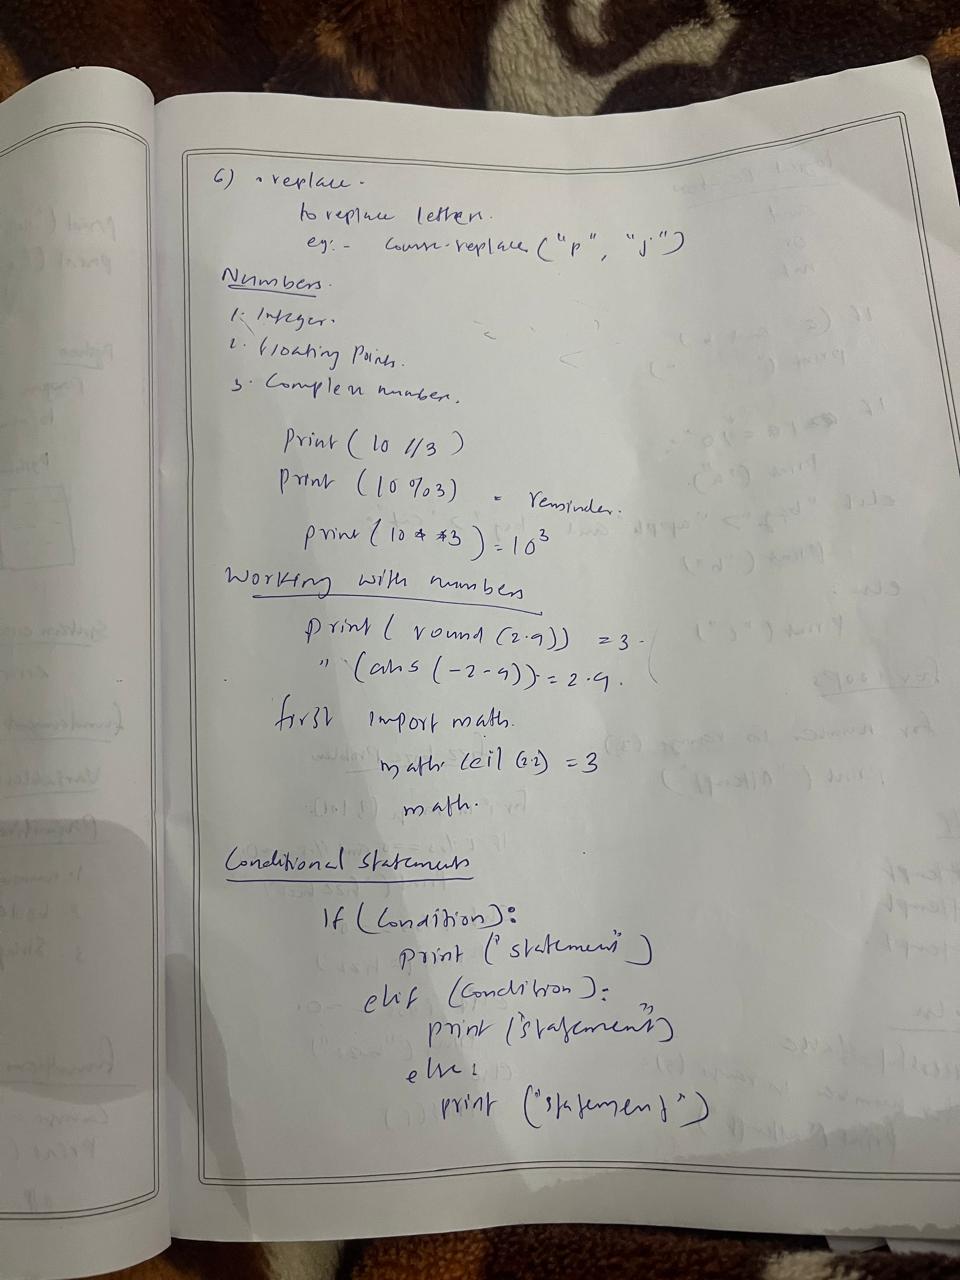 6) .replace.
to replace letter.
eg:- Course.replace ("p", "j")
Numbers.
1. Integer.
2. floating Points.
3. Complex number.
print ( 10 //3 )
print (10 %3) = reminder.
print (10 **3 ) = 10³
Working with numbers
print ( round (2.9)) = 3.
" (abs (-2.9)) = 2.9.
first import math.
math. ceil (2.2) = 3
math.
Conditional statements
If (Condition):
print ("statement")
elif (Condition):
print ("statement")
else:
print ("statement")